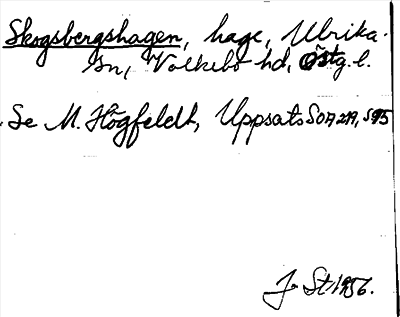 Skogsbergshagen, hage, Ulrika
sn, Valkebo hd, Östg.l.
Se M. Högfeldt, Uppsats SOA 279, s 95
J. St 1956.